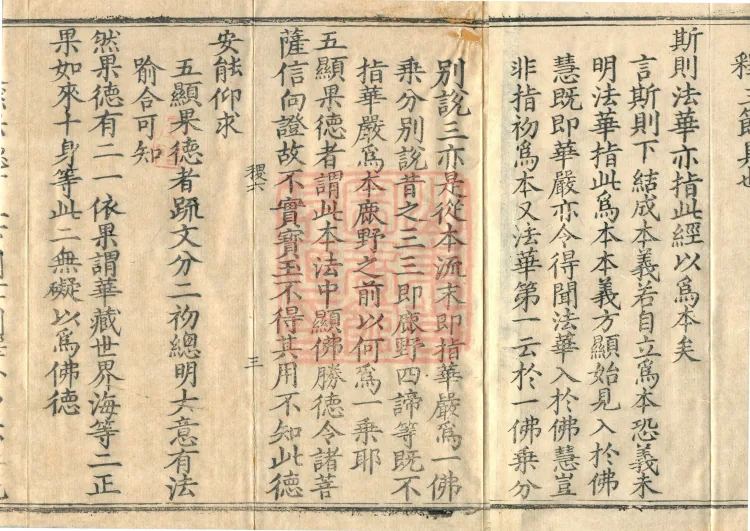 斯則法華亦指此經以爲本矣
言斯則下結成本義若自立爲本恐義未
明法華指此爲本本義方顯始見入於佛
慧既即華嚴亦令得聞法華入於佛慧豈
非指初爲本又法華第一云於一佛乘分
別說三亦是從本流末即指華嚴爲一佛
乘分別說昔之三三即鹿野四諦等既不
指華嚴爲本鹿野之前以何爲一乘耶
五顯果德者謂此本法中顯佛勝德令諸菩
薩信向證故不實寶玉不得其用不知此德
稷六
三
安能仰求
五顯果德者疏文分二初總明大意有法
喻合可知
然果德有二一依果謂華藏世界海等二正
果如來十身等此二無礙以爲佛德